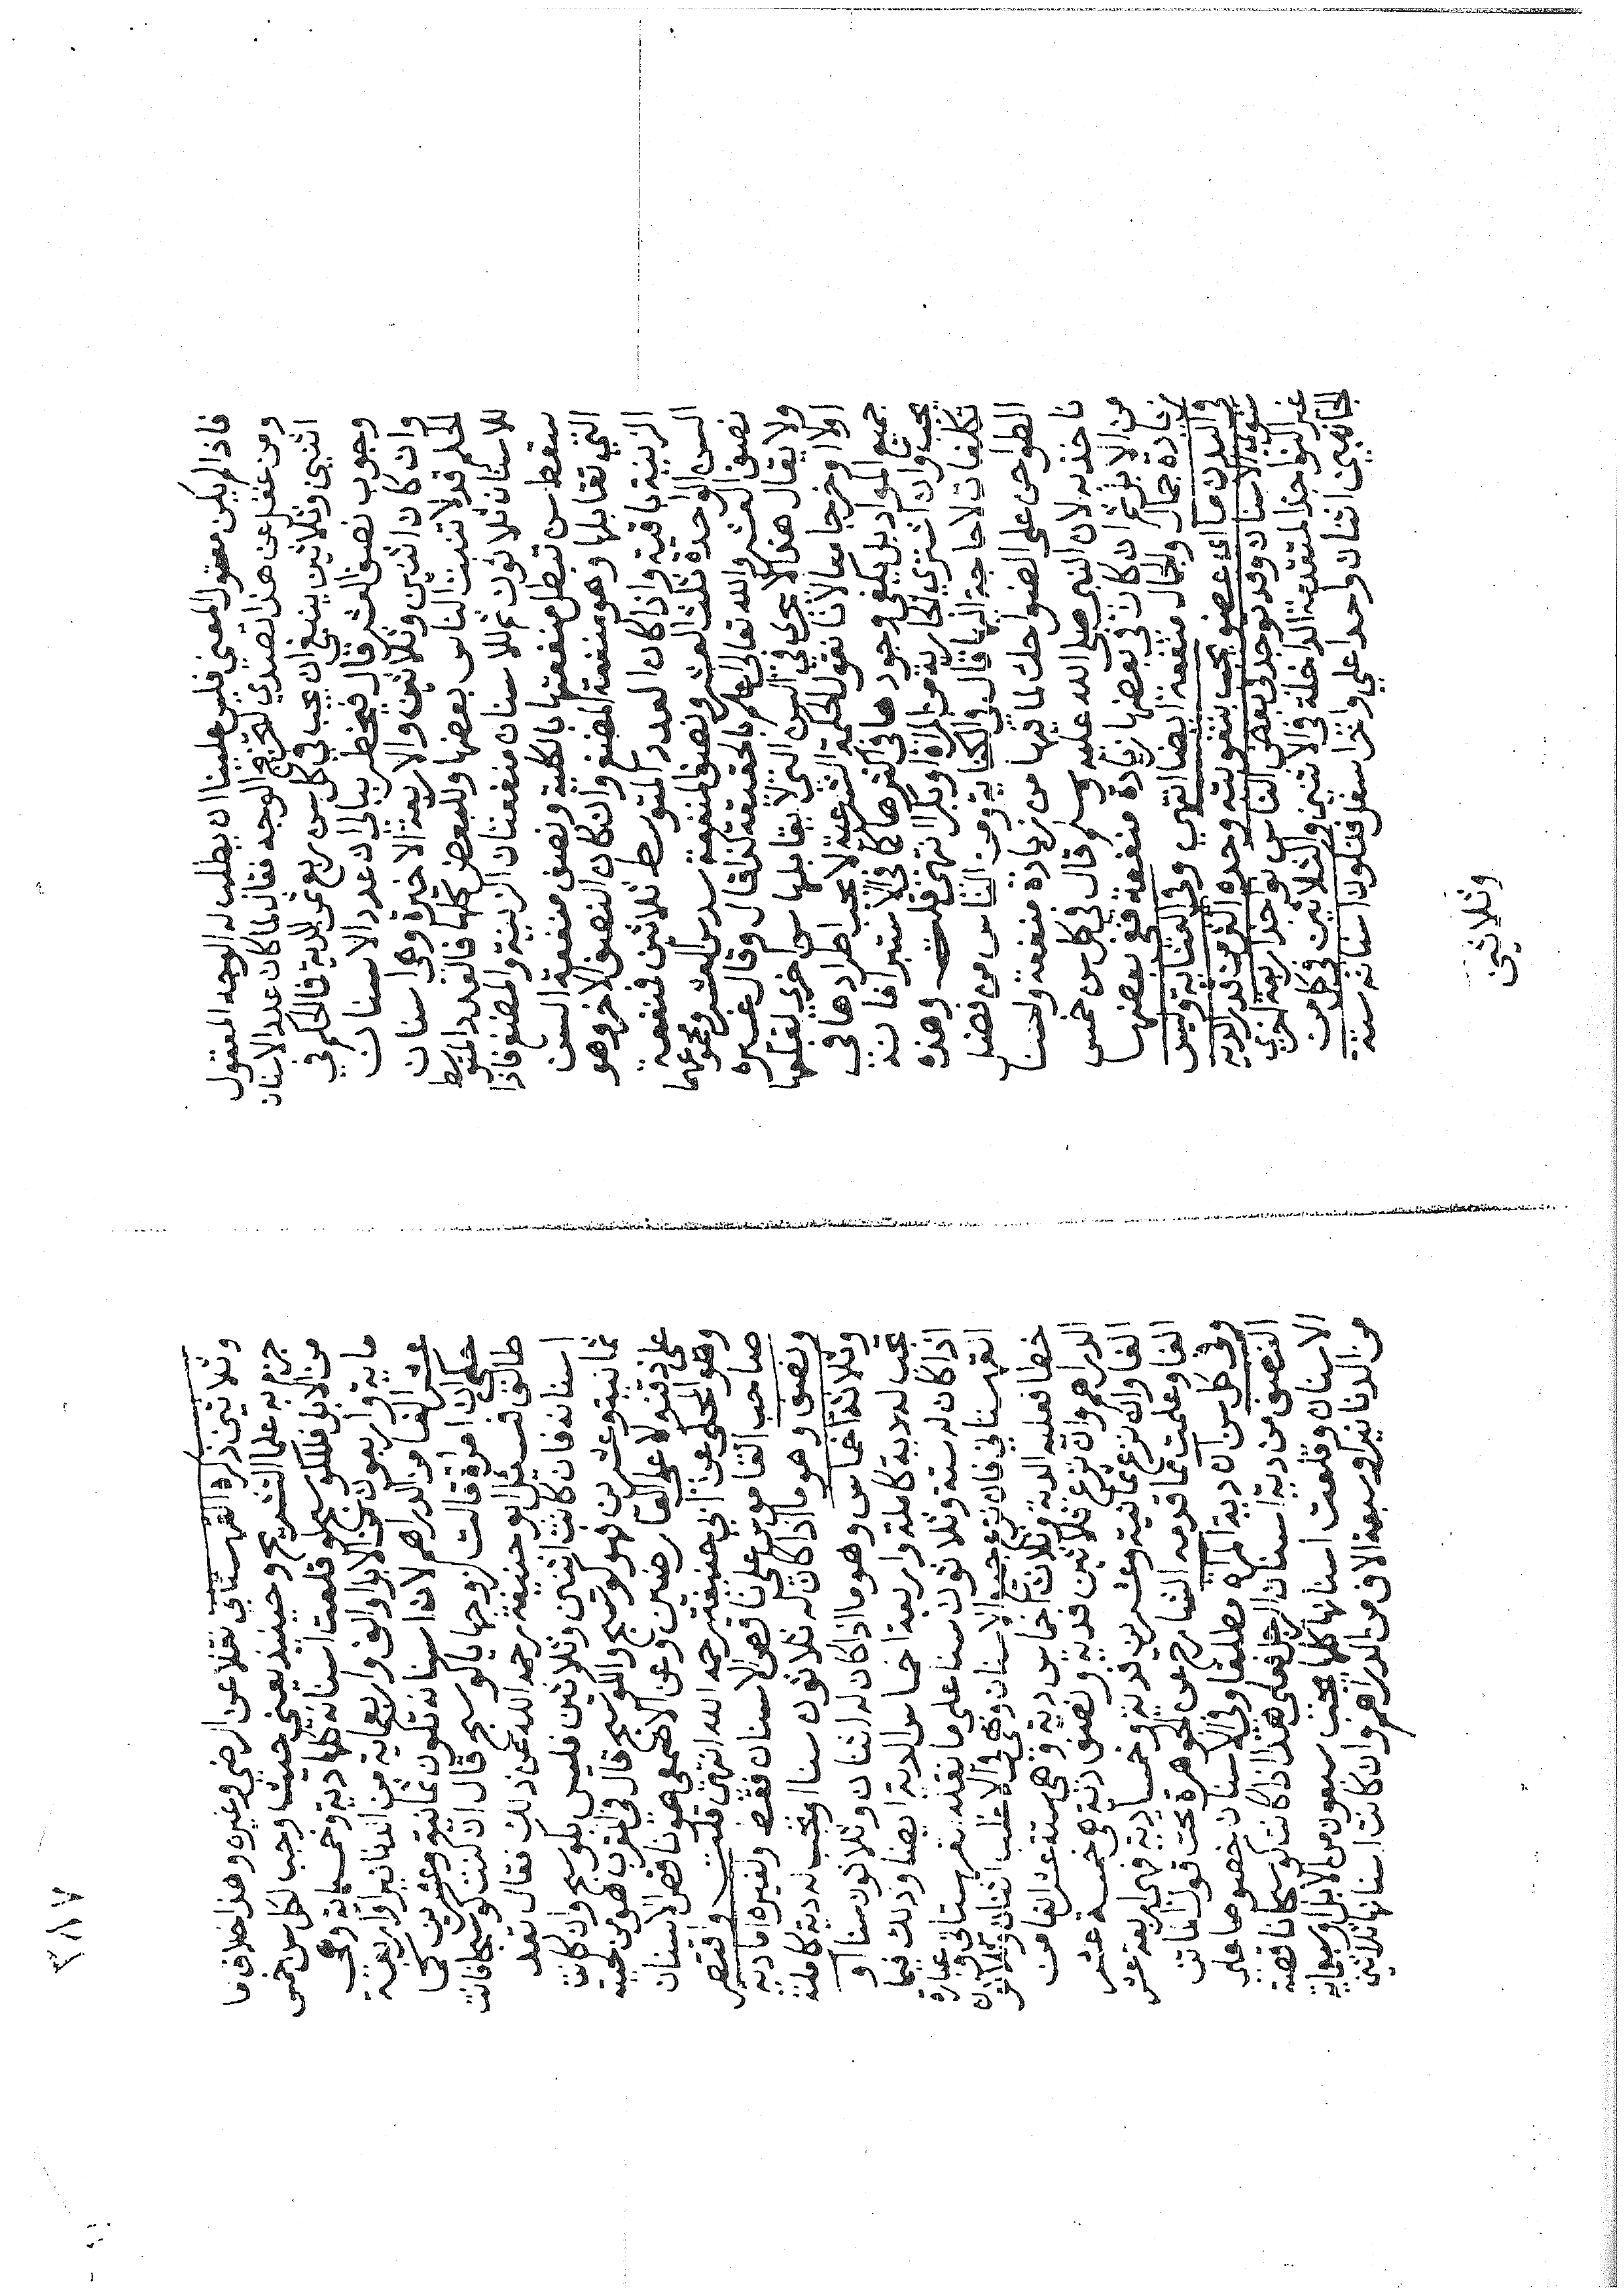 فاذا لم يكن معقول المعنى فليس علينا ان يطلب له الوجه المعقول
ومن غفل عن هذا تصدي لتخريج الوجه فقال لما كان عدد الاسنان
اثنين وثلاثين ينبغي ان يجب في كل سن ربع ثمن الدية فالحكم في
وجوب نصف العشر قال فيخطر ببالي ان عدد الاسنان
وان كان اثنين وثلاثين والاربعة الاخيرة وهي اسنان
الحلم قد لا تنبت لبعض الناس بعضها وللبعض كلها فالعدد المتوسط
للاسنان ثلاثون ثم للاسنان منفعتان الزينة والمضغ فاذا
سقط سن تبطل منفعتها بالكلية ونصف منفعة السن
التي تقابلها وهو منفعة المضغ وان كان النصف الاخر وهو
الزينة باقية واذا كان العدد المتوسط ثلاثين فمنفعة
السن الواحدة ثلث العشر ونصف المنفعة سدس العشر ومجموعهما
نصف العشر والله تعالى اعلم بالحقيقة كذا قال وقال غيره
ولا يقال هذا لا يجري في السن التي لا يقابلها سن اخرى لفقدها
اولا او خرجا معا لانا نقول الحكمة الشرعية لا يجب اطرادها في
جميع المواد بل يكفي وجودها في اكثرها كما في الاستبرا فانه
يجب وان اشترى الجارية من المراة او بكرا انتهى قلت وهذه
تكلفات لا حاجة اليها قال في الكفاية ومن الناس من فضل
الطواحن على الضواحك لما فيها من زيادة منفعة ولسنا
ناخذ به لان النبي صلى الله عليه وسلم قال في كل سن خمس
من الابل ثم ان كان في بعضها زيادة منفعة ففي بعضها
زيادة جمال والجمال منفعة ايضا انتهى وفي العناية وليس
في البدن ما اي عضو يجب بتفويته وحده اكثر من قدر الدية
سوى الاسنان وقد توجد لبعض الناس نواجذ اربعة اخرى
غير النواجذ المتقدمة الداخلة في الاثنين والثلاثين في كل من
الجانبين اثنان واحد اعلى واخر اسفل فتكون اسنانه ستة
وثلاثين
٣٨٧
وثلاثين ذكره القهستاني نقلا عن الرضي وغيره وهذا خلاف ما
جزم به علما التشريح وحينئذ يعني حيث وجب لكل سن خمس
من الابل فللكوسج لو قلعت اسنانه كلها دية وخمسا دية وهي
ماية واربعون من الابل او الف واربعماية من الدنانير او اربعة
عشر الفا من الدراهم لان اسنانه تكون ثمانية وعشرين كما
حكي ان امراة قالت لزوجها يا كوسج قال ان كنت كوسجا فانت
طالق فسئل ابو حنيفة رحمه الله عن ذلك فقال تعد
اسنانه فان كانت اثنين وثلاثين فليس بكوسج وان كانت
ثمانية وعشرين فهو كوسج والكوسج قال في المغرب هو من لحيته
على ذقنه لا على العارضين وعن الاصمعي هو ناقص الاسنان
وهو المحكي عن ابي حنيفة رحمه الله انتهى قلت واقتصر
صاحب القاموس على ناقص الاسنان فقط ولغيره اما دية
ونصف وهو ما اذا كان له ثلاثون سنا او تجب له دية كاملة
وثلاثة اخماس وهو ما اذا كان له اثنان وثلاثون سنا او
تجب له دية كاملة واربعة اخماس الدية ايضا وذلك فيما
اذا كان له ستة وثلاثون سنا على ما نقله قهستاني وعبارة
القهستاني فان نزع جميع الاسنان وهي في الاغلب اثنان وثلاثون
خطا فعليه الدية وثلاث اخماس دية وهي ستة عشر الفا من
الدراهم وان نزع ثلاثين فدية ونصف دية هي خمسة عشر
الفا وان نزع ثمانية وعشرين فدية وخمسا دية فهي اربعة عشر
الفا وعلمت مما قدمه الشارح عن الجوهرة تحت قول الماتن
وفي كل سن ان دية المراة مطلقا وفي الاسنان خصوصا على
النصف من دية اسنان الرجل فعلى هذا اذا كانت كوسجا ناقصة
الاسنان وقلعت اسنانها كلها يجب سبعون من الابل او سبعماية
من الدنانير او سبعة الاف من الدراهم وان كانت اسنانها ثلاثين